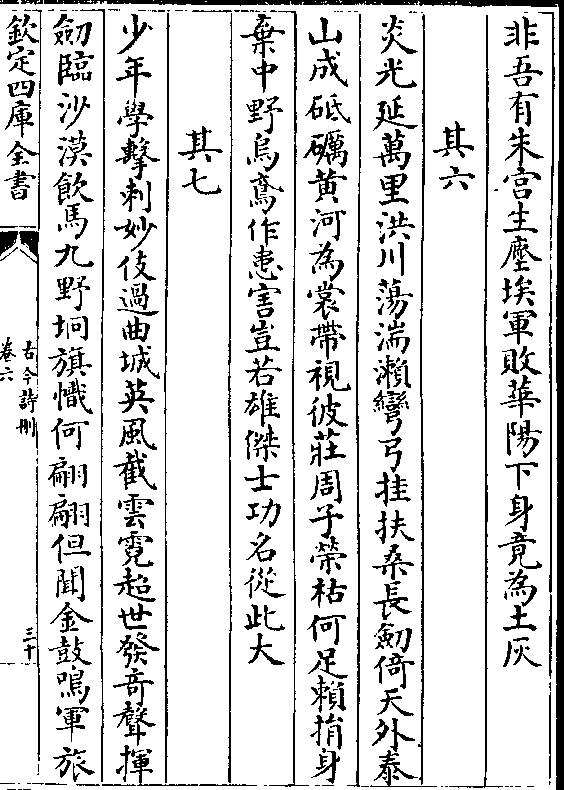 非吾有朱宫生塵埃軍敗華陽下身竟為土灰
其六
炎光延萬里洪川蕩湍瀨彎弓挂扶桑長劒倚天外泰
山成砥礪黄河為裳帶視彼莊周子榮枯何足賴捐身
棄中野烏鳶作患害豈若雄傑士功名從此大
其七
少年學擊刺妙伎過曲城英風截雲霓超世發奇聲揮
劒臨沙漠飲馬九野坰旗幟何翩翩但聞金鼓鳴軍旅
欽定四庫全書
古今詩刪
卷六
三十